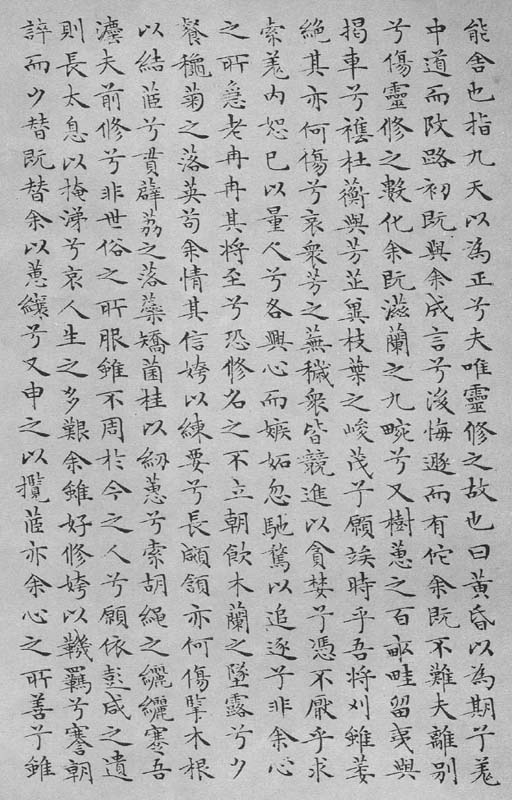 能舍也指九天以為正兮夫唯靈修之故也曰黃昏以為期兮羗
中道而改路初既與余成言兮後悔遯而有佗余既不難夫離別
兮傷靈修之數化余既滋蘭之九畹兮又樹蕙之百畝畦留夷與
揭車兮襍杜蘅與芳芷兾枝葉之峻茂兮願竢時乎吾將刈雖萎
絕其亦何傷兮哀衆芳之蕪穢衆皆競進以貪婪兮憑不厭乎求
索羗内恕已以量人兮各興心而嫉妬忽馳騖以追逐兮非余心
之所急老冉冉其將至兮恐修名之不立朝飲木蘭之墜露兮夕
餐秋菊之落英苟余情其信姱以練要兮長顑頷亦何傷擥木根
以結茝兮貫薜荔之落蘂矯菌桂以紉蕙兮索胡繩之纚纚謇吾
灋夫前修兮非世俗之所服雖不周於今之人兮願依彭咸之遺
則長太息以掩涕兮哀人生之多艱余雖好修姱以鞿羈兮謇朝
誶而夕替既替余以蕙纕兮又申之以攬茝亦余心之所善兮雖